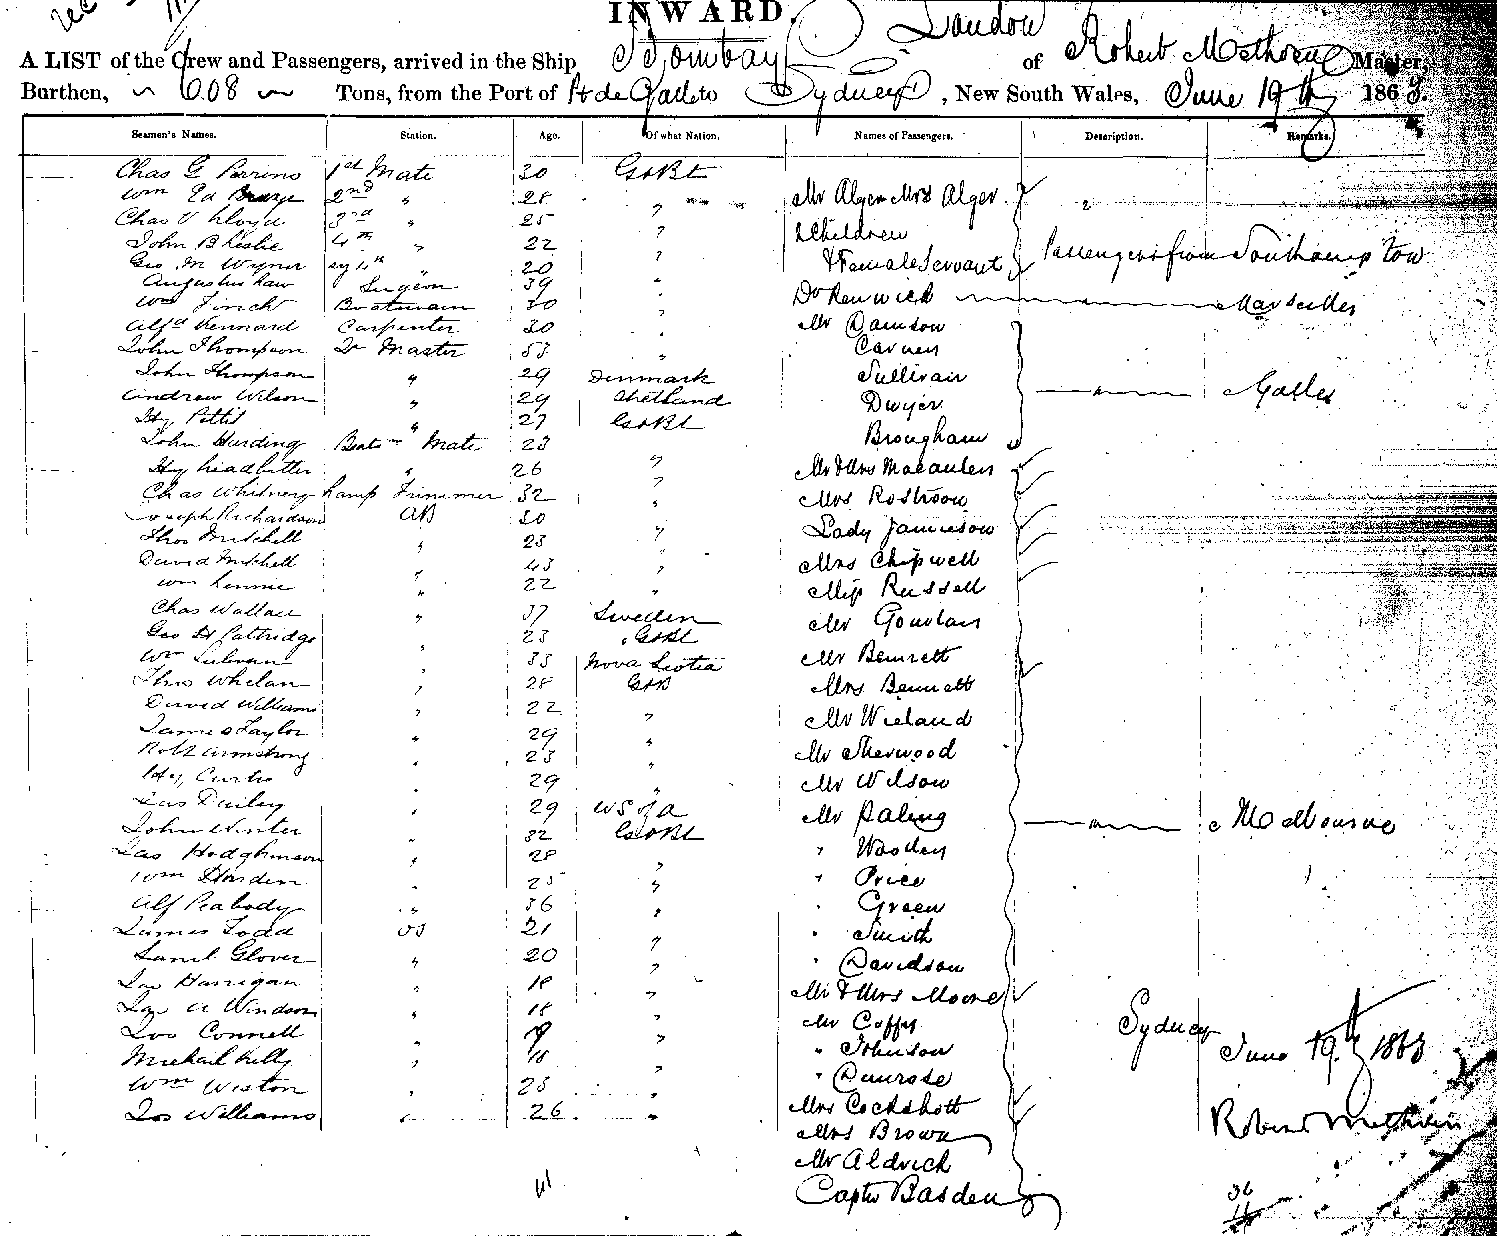 INWARD.
A LIST of the Crew and Passengers, arrived in the Ship Bombay of London Robert Methven Master,
Burthen, 608 Tons, from the Port of Pt de Galle to Sydney, New South Wales, June 19th 1863.
Seamen's Names. Station. Age. Of what Nation. Names of Passengers. Description. Remarks.
Chas G Perrins 1st Mate 30 Gt Bt
Wm Ed 2nd " 28 " Mr Alger Mrs Alger "
Chas V Lloyd 3rd 25 "
John B Leslie 4th " 22 " Children
Geo M Wymer 4th " 20 " & Female Servant Passengers from Southampton
Augustus Law Surgeon 39 "
Wm Finch Boatswain 30 " Dr Renwick " Marseilles
Alfd Kennard Carpenter 30 " Mr Damson
John Thompson Qr Master 53 " Carven
John Thompson " 29 Denmark Sullivan
Andrew Wilson " 29 Shetland Dwyer " Galles
Hy Pettit " 27 Gt Bt
John Harding Boatsn Mate 23 Brougham
Hy Leadbitter " 26 " Mr & Mrs Macaulen
Chas Whitney Lamp Trimmer 32 " Mrs Rostron
Joseph Richardson AB 30 "
Thos Mitchell " 23 " Lady Jamieson
David Mitchell 43 " Mrs Chipwell
Wm Lennie " 22 " Miss Russell
Chas Wallace " 37 Sweden Mr Goulan
Geo H Pattridge 23 Gt Bt
Wm Sulivan " 33 Nova Scotia Mr Bennett
Thos Whelan " 28 Gt B Mrs Bennett
David Williams " 22 "
James Taylor " 29 " Mr Wieland
Robt Armstrong " 23 " Mr Sherwood
Hy Curtis " 29 " Mr Wilson
Jas Dailey " 29 US of A Mr Paling
John Winter " 32 Gt Bt " Melbourne
Jas Hodghinson " 28 " " Woolley
Wm Harden " 25 " " Price
Alf Peabody " 36 " " Green
James Todd OS 21 " Smith
Saml Glover " 20 " " Davidson
Jas Hanigan " 18 "
Jas A Windson " 18 " Mr & Mrs Moore
Jos Connell " 19 " Mr Coffey Sydney
Michael Killy " 18 " " Johnson June 19th 1863
Wm Weston " 23 " Penrose
Jos Williams " 26 " Mrs Cockshott
Mrs Brown Robert Methven
Mr Aldrich
41 Captn Basden
36